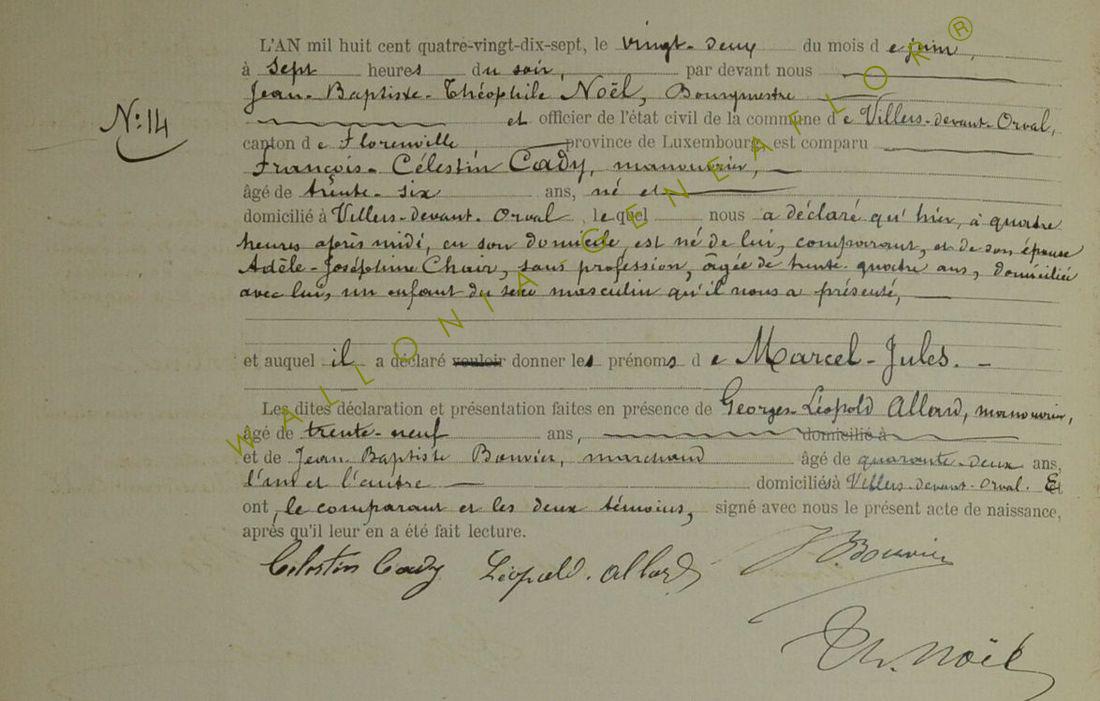 L'AN mil huit cent quatre-vingt-dix-sept, le vingt-deux du mois de juin,
à sept heures du soir, par devant nous
Jean-Baptiste-Théophile Noël, Bourgmestre
et officier de l'état civil de la commune de Villers-devant-Orval,
N° 14
canton de Florenville province de Luxembourg est comparu
François-Célestin Cady, manouvrier,
âgé de trente-six ans, né et
domicilié à Villers-devant-Orval, lequel nous a déclaré qu'hier, à quatre
heures après midi, en son domicile, est né de lui, comparant, et de son épouse
Adèle-Joséphine Chair, sans profession, âgée de trente-quatre ans, domiciliée
avec lui, un enfant du sexe masculin qu'il nous a présenté,
et auquel il a déclaré vouloir donner les prénoms de Marcel-Jules.
Les dites déclaration et présentation faites en présence de Georges-Léopold Allard, manouvrier,
âgé de trente-neuf ans, domicilié à
et de Jean Baptiste Bouvier, marchand âgé de quarante-deux ans,
l'un et l'autre domiciliés à Villers-devant-Orval. Et
ont, le comparant et les deux témoins, signé avec nous le présent acte de naissance,
après qu'il leur en a été fait lecture.
Celestin Cady Léopold. Allard J. Bouvier
Th. Noël
WALLONIA GENEAFLOR ®